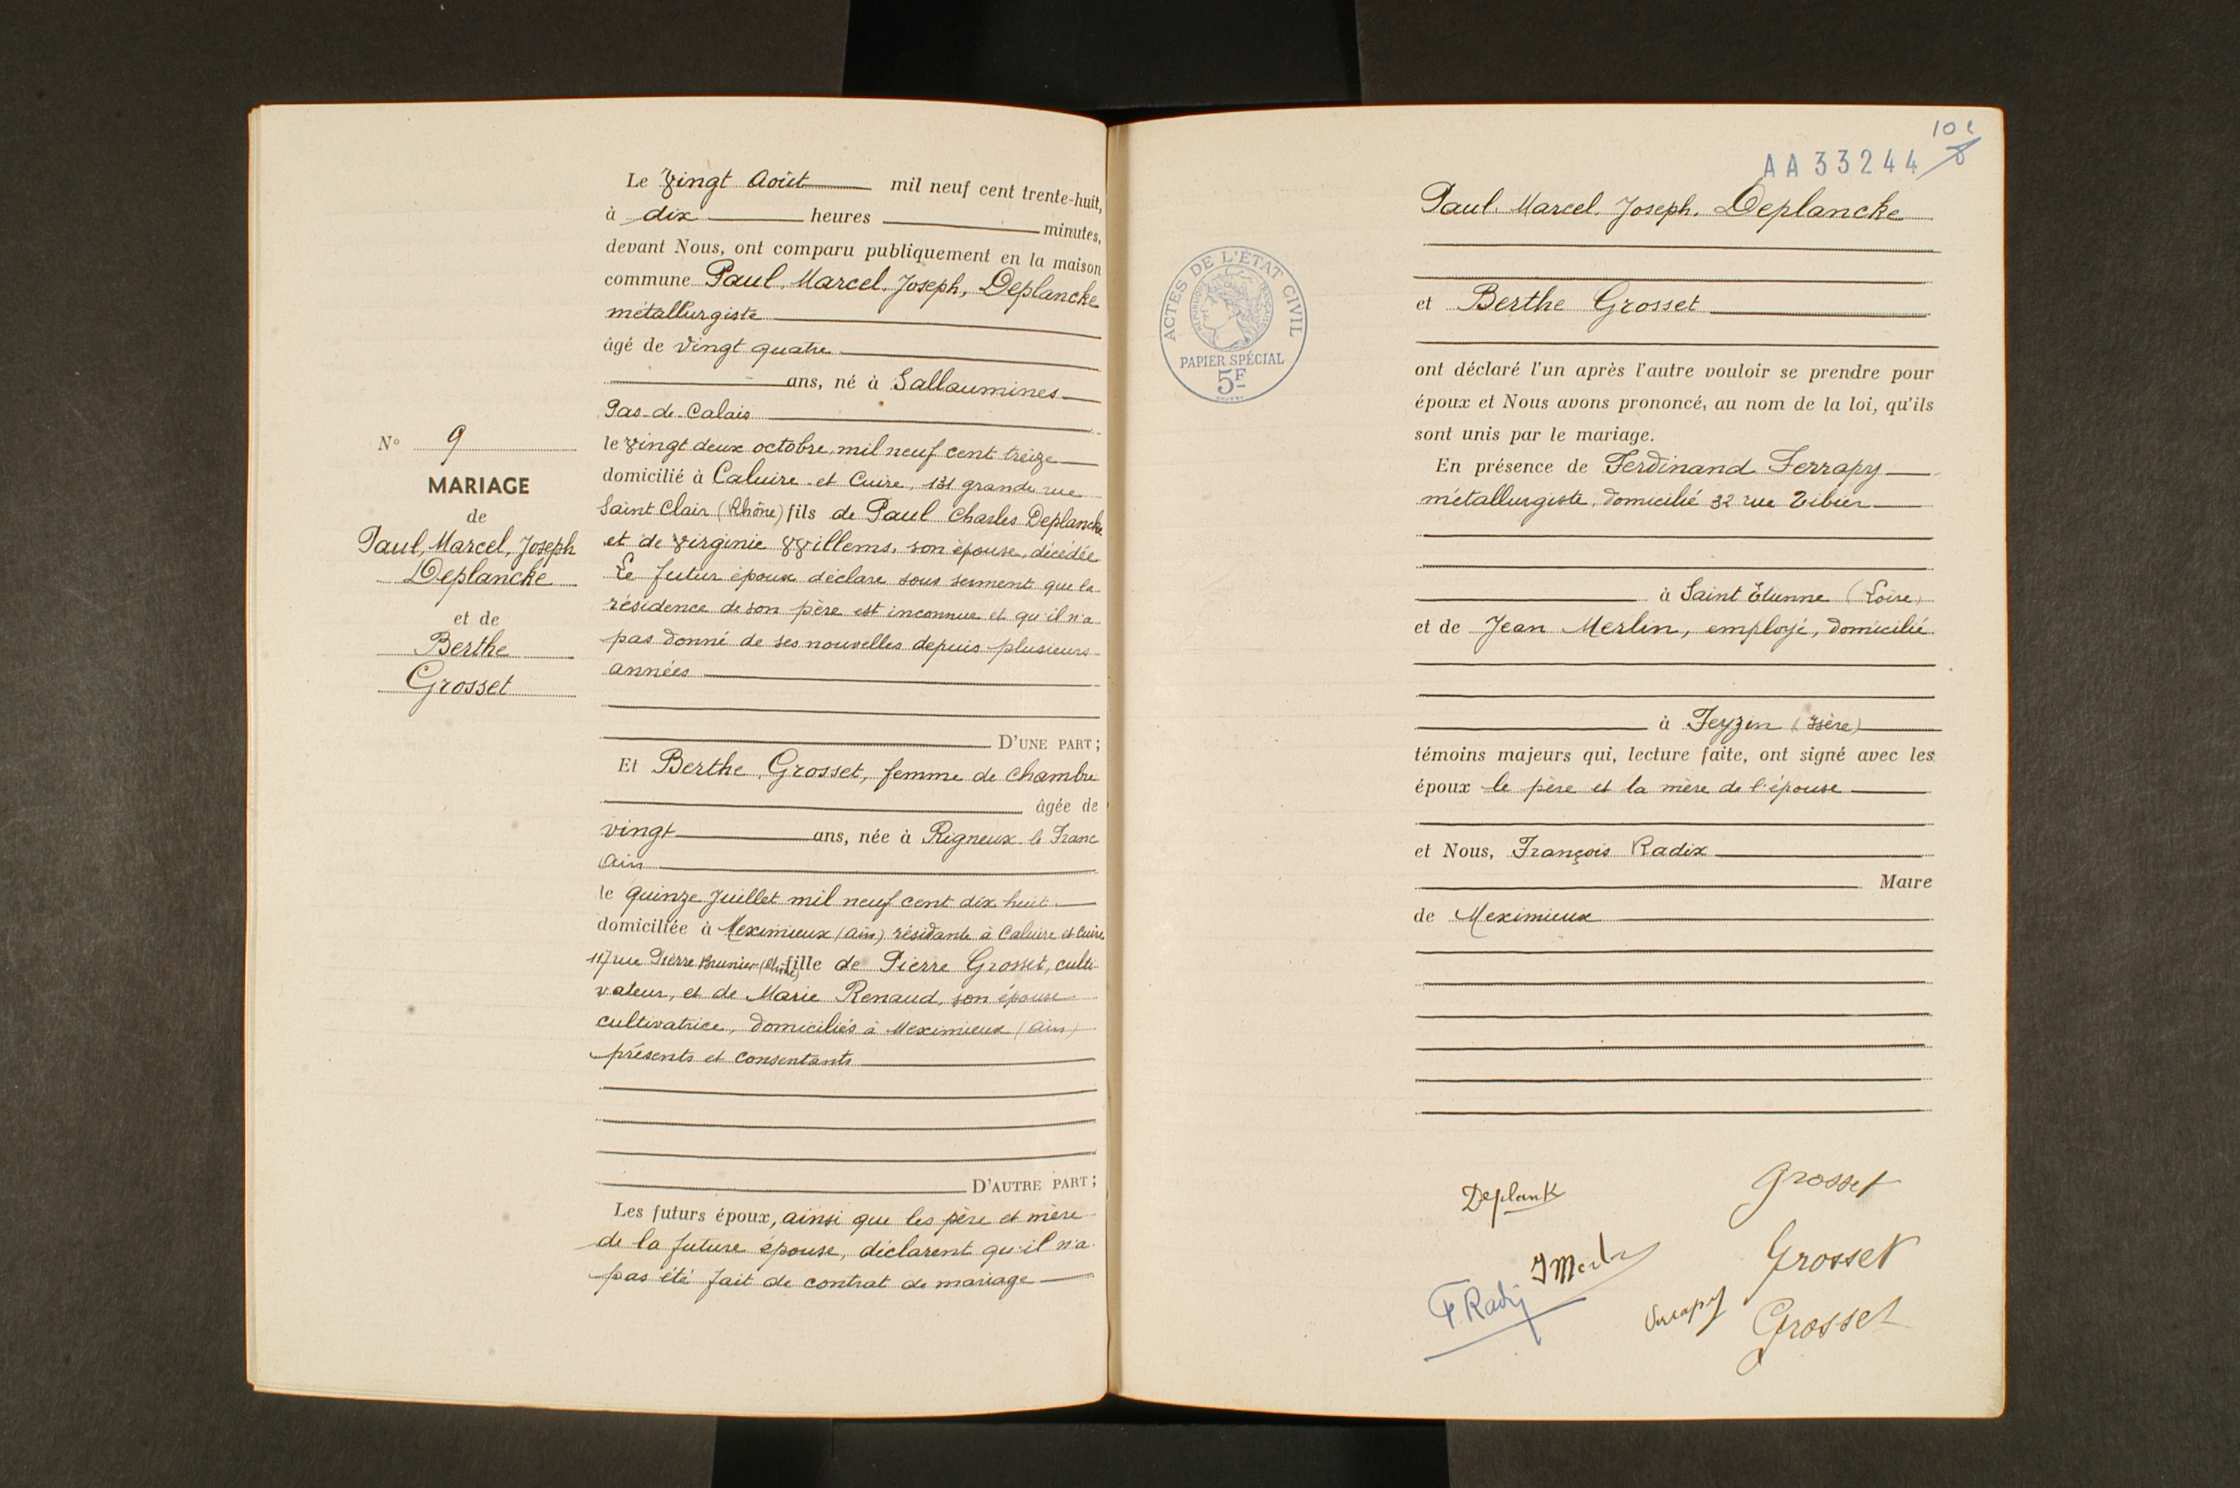 Le Vingt Août mil neuf cent trente-huit,
à dix heures minutes,
devant Nous, ont comparu publiquement en la maison
commune Paul, Marcel, Joseph, Deplancke
métallurgiste
âgé de vingt quatre
ans, né à Sallaumines
Pas-de-Calais
le vingt deux octobre mil neuf cent treize
domicilié à Caluire et Cuire, 131 grande rue
Saint Clair (Rhône) fils de Paul Charles Deplancke
et de Virginie Willems, son épouse, décédée
Le futur époux déclare sous serment que la
résidence de son père est inconnue et qu'il n'a
pas donné de ses nouvelles depuis plusieurs
années
D'UNE PART;
Et Berthe, Grosset, femme de chambre
âgée de
vingt ans, née à Rigneux le Franc
Ain
le quinze Juillet mil neuf cent dix huit
domiciliée à Meximieux (Ain) résidante à Caluire et Cuire
117 rue Pierre Brunier (Rhône) fille de Pierre Grosset, culti
vateur, et de Marie Renaud, son épouse
cultivatrice, domiciliés à Meximieux (Ain)
présents et consentants
D'AUTRE PART;
Les futurs époux, ainsi que les père et mère
de la future épouse, déclarent qu'il n'a
pas été fait de contrat de mariage
N° 9
MARIAGE
de
Paul, Marcel, Joseph
Deplancke
et de
Berthe
Grosset
10
AA33244
ACTES DE L'ÉTAT CIVIL
RÉPUBLIQUE FRANÇAISE
PAPIER SPÉCIAL
5F
Paul, Marcel, Joseph, Deplancke
et Berthe Grosset
ont déclaré l'un après l'autre vouloir se prendre pour
époux et Nous avons prononcé, au nom de la loi, qu'ils
sont unis par le mariage.
En présence de Ferdinand Serrapy
métallurgiste, domicilié 32 rue Tibier
à Saint Etienne (Loire)
et de Jean Merlin, employé, domicilié
à Feyzin (Isère)
témoins majeurs qui, lecture faite, ont signé avec les
époux le père et la mère de l'épouse
et Nous, François Radix
Maire
de Meximieux
Deplank
Grosset
J Merlin
Grosset
F. Radix
Serrapy
Grosset